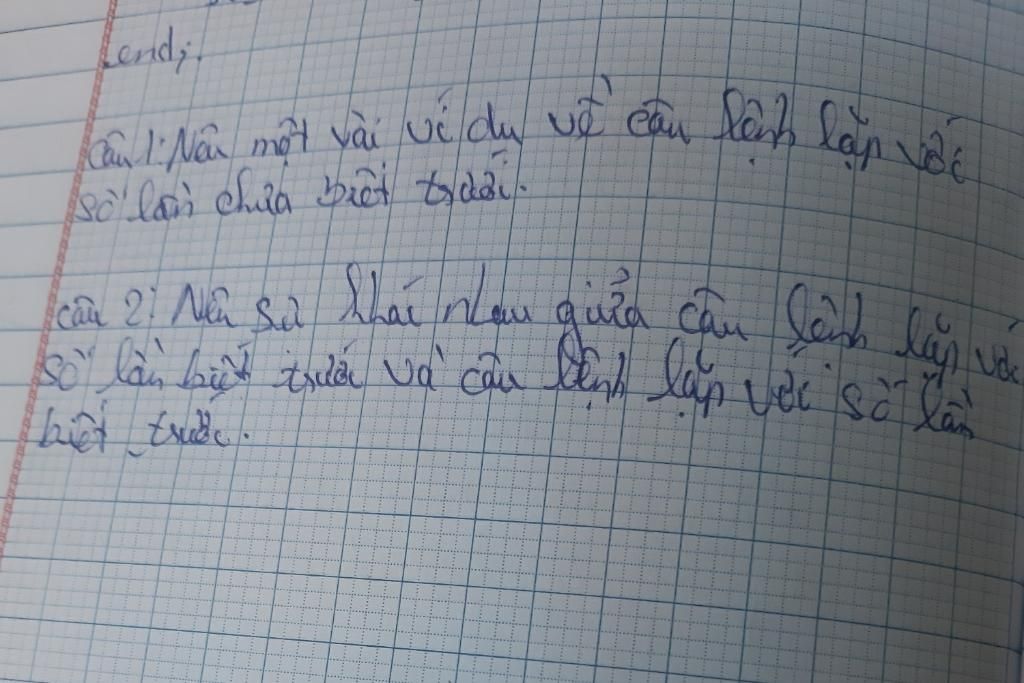 end;
Câu 1: Nêu một vài ví dụ về câu lệnh lặp với
số lần chưa biết trước.
câu 2: Nêu sự khác nhau giữa câu lệnh lặp với
số lần biết trước và câu lệnh lặp với số lần
biết trước.